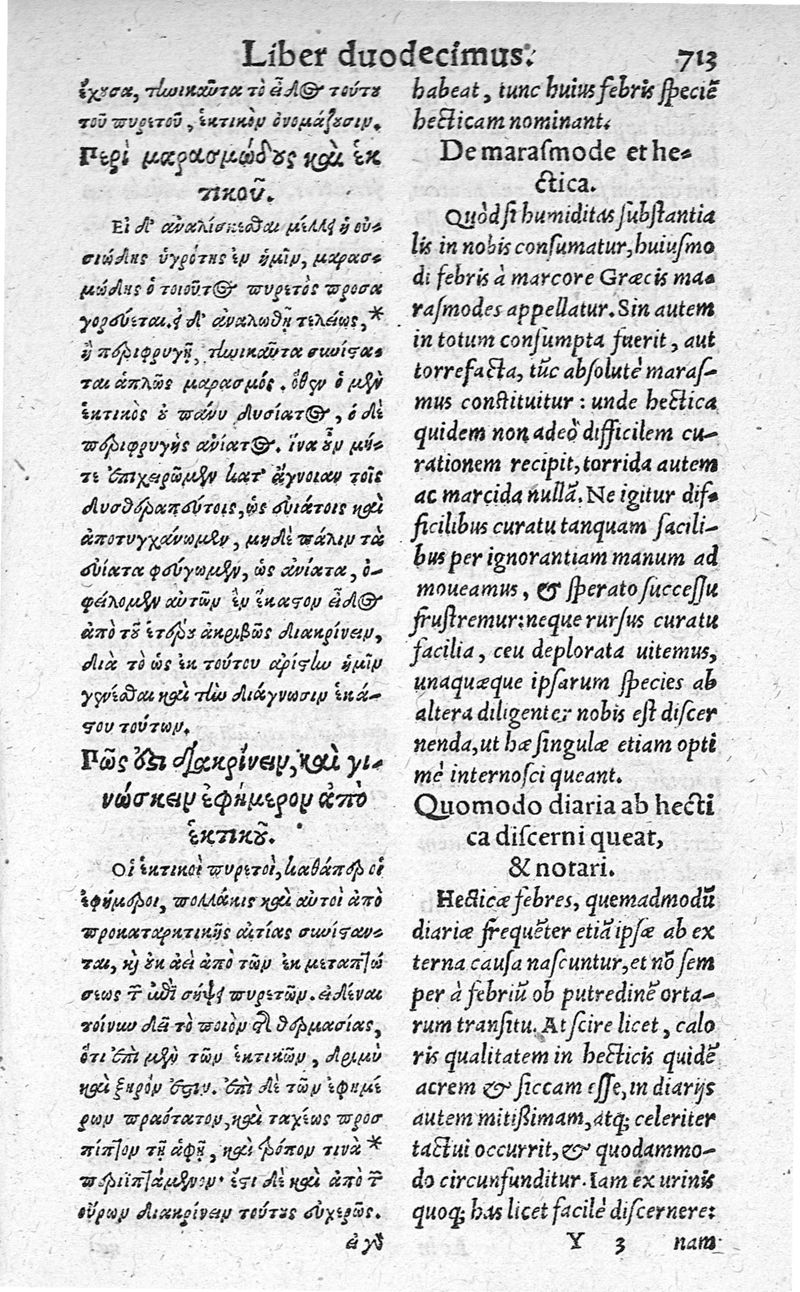 Liber duodecimus. 713
ἔχουσα, τηνικαῦτα τὸ εἶδος τούτου
τοῦ πυρετοῦ, ἑκτικὸν ὀνομάζουσιν.
Περὶ μαρασμώδους καὶ ἑκ
τικοῦ.
Εἰ δ' ἀναλίσκεσθαι μέλλει ἡ οὐ-
σιώδης ὑγρότης ἐν ἡμῖν, μαρασ-
μώδης ὁ τοιοῦτος πυρετὸς προσα
γορεύεται. εἰ δ' ἀναλωθῇ τελείως, *
ἢ περιφρυγῇ, τηνικαῦτα συνίστα-
ται ἁπλῶς μαρασμός. ὅθεν ὁ μὲν
ἑκτικὸς οὐ πάνυ δυσίατος, ὁ δὲ
περιφρυγὴς ἀνίατος. ἵνα οὖν μή-
τε ἐπιχειρῶμεν κατ' ἄγνοιαν τοῖς
δυσθεραπεύτοις, ὡς εὐιάτοις καὶ
ἀποτυγχάνωμεν, μηδὲ πάλιν τὰ
εὐίατα φεύγωμεν, ὡς ἀνίατα, ὀ-
φείλομεν αὐτῶν ἓν ἕκαστον εἶδος
ἀπὸ τοῦ ἑτέρου ἀκριβῶς διακρίνειν,
διὰ τὸ ὡς ἐκ τούτου ἀρίστην ἡμῖν
γενέσθαι καὶ τὴν διάγνωσιν ἑκά-
στου τούτων.
Πῶς δεῖ διακρίνειν, καὶ γι-
νώσκειν ἐφήμερον ἀπὸ
ἑκτικοῦ.
Οἱ ἑκτικοὶ πυρετοὶ, καθάπερ οἱ
ἐφήμεροι, πολλάκις καὶ αὐτοὶ ἀπὸ
προκαταρκτικῆς αἰτίας συνίσταν-
ται, καὶ οὐκ ἀεὶ ἀπὸ τῶν ἐκ μεταπτώ
σεως τῶν ἐπὶ σήψει πυρετῶν. εἰδέναι
τοίνυν δεῖ τὸ ποιὸν τῆς θερμασίας,
ὅτι ἐπὶ μὲν τῶν ἑκτικῶν, δριμὺ
καὶ ξηρόν ἐστιν. ἐπὶ δὲ τῶν ἐφημέ
ρων πραότατον, καὶ ταχέως προσ
πίπτον τῇ ἁφῇ, καὶ τρόπον τινὰ *
περιϊπτάμενον· ἔτι δὲ καὶ ἀπὸ τῶν
οὔρων διακρίνειν τούτους εὐχερῶς.
εἰ γὰρ
habeat, tunc huius febris speciē
hecticam nominant.
De marasmode et he-
ctica.
Quòd si humiditas substantia
lis in nobis consumatur, huiusmo
di febris à marcore Græcis ma-
rasmodes appellatur. Sin autem
in totum consumpta fuerit, aut
torrefacta, tūc absolutè maras-
mus constituitur: unde hectica
quidem non adeò difficilem cu-
rationem recipit, torrida autem
ac marcida nullā. Ne igitur dif-
ficilibus curatu tanquam facili-
bus per ignorantiam manum ad
moueamus, & sperato successu
frustremur: neque rursus curatu
facilia, ceu deplorata uitemus,
unaquæque ipsarum species ab
altera diligenter nobis est discer
nenda, ut hæ singulæ etiam opti
mè internosci queant.
Quomodo diaria ab hecti
ca discerni queat,
& notari.
Hecticæ febres, quemadmodū
diariæ frequēter etiā ipsæ ab ex
terna causa nascuntur, et nō sem
per à febriū ob putredinē orta-
rum transitu. At scire licet, calo
ris qualitatem in hecticis quidē
acrem & siccam esse, in diarijs
autem mitissimam, atq; celeriter
tactui occurrit, & quodammo-
do circunfunditur. Iam ex urinis
quoq; has licet facilè discernere:
Y 3 nam